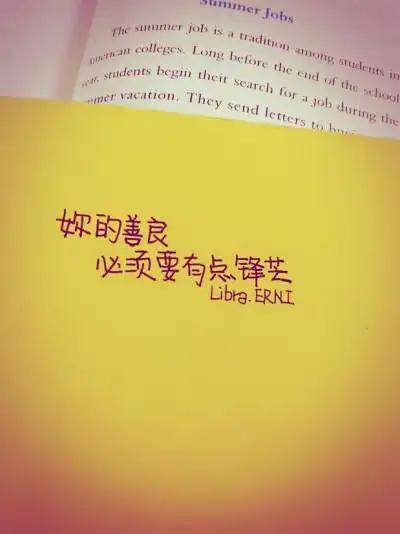 Summer Jobs
The summer job is a tradition among students in
American colleges. Long before the end of the school
year, students begin their search for a job during the
summer vacation. They send letters to
妳的善良
必须要有点锋芒
Libra.ERNI